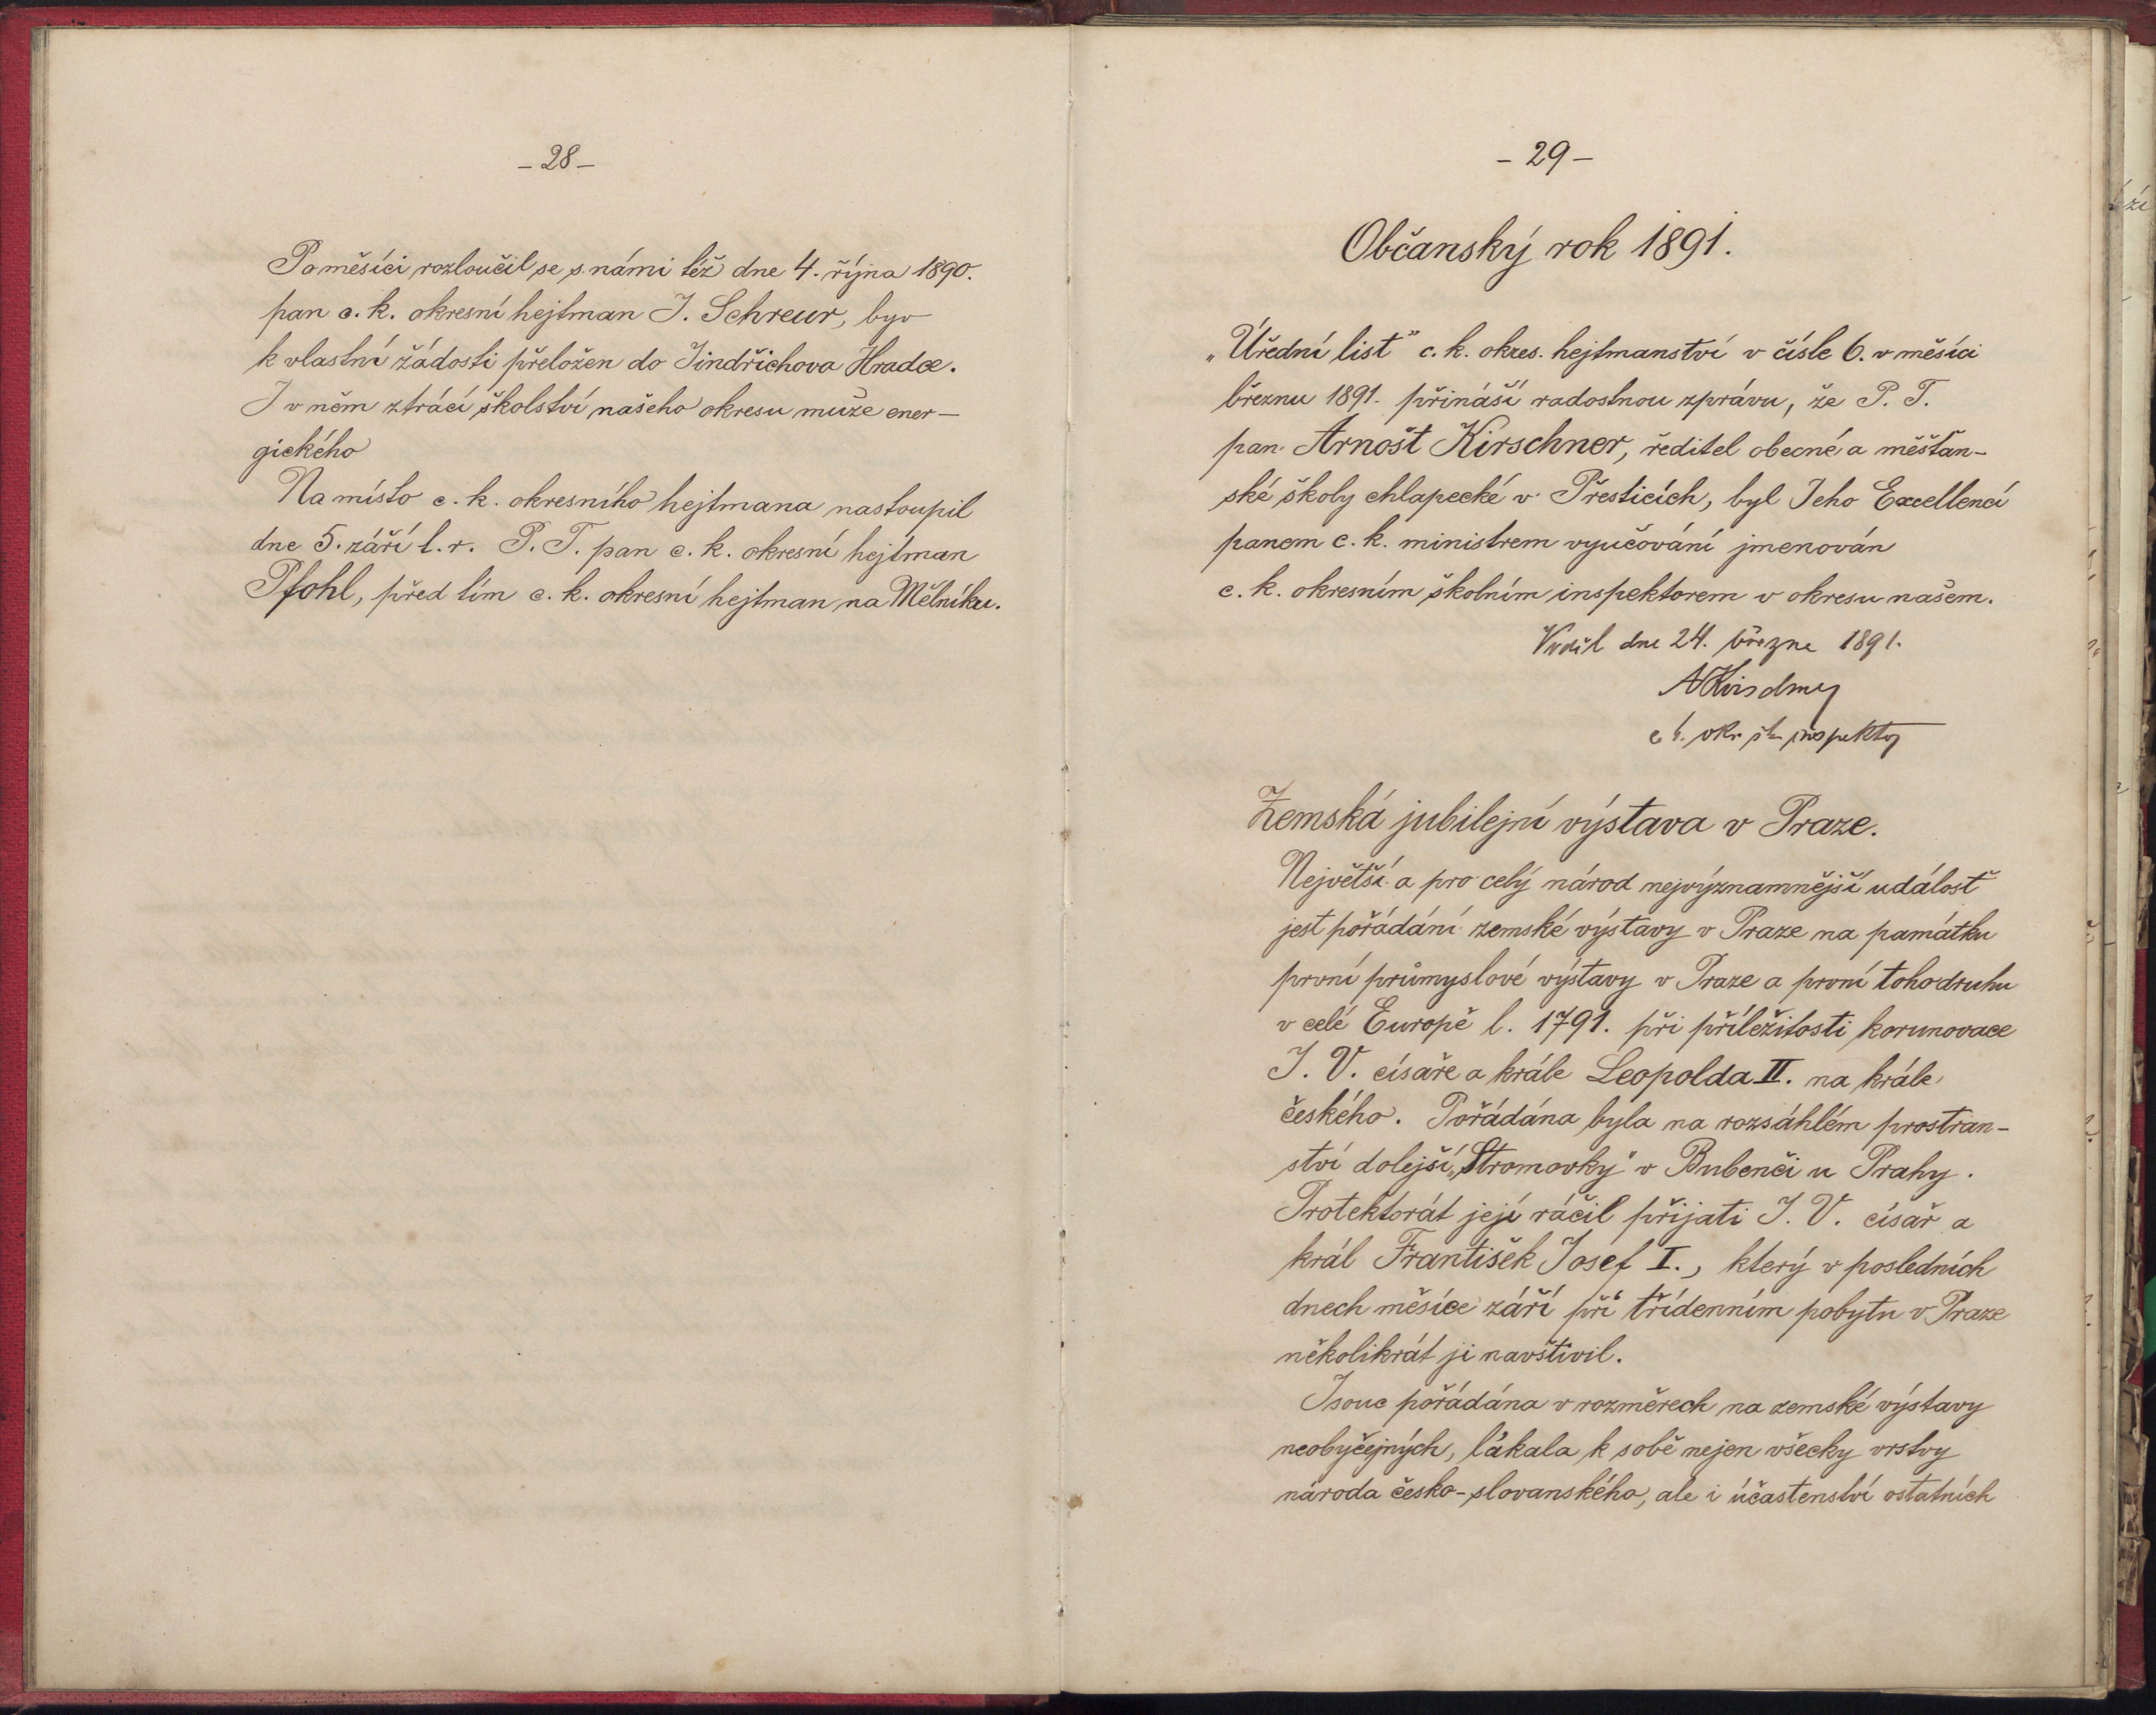 – 28 –
Po měsíci rozloučil se s námi též dne 4. října 1890.
pan c. k. okresní hejtman J. Schreur, byv
k vlastní žádosti přeložen do Jindřichova Hradce.
I v něm ztrácí školství našeho okresu muže ener-
gického
Na místo c. k. okresního hejtmana nastoupil
dne 5. září t. r. P. T. pan c. k. okresní hejtman
Pfohl, před tím c. k. okresní hejtman na Mělníku.
– 29 –
Občanský rok 1891.
„Úřední list" c. k. okres. hejtmanství v čísle 6. v měsíci
březnu 1891. přináší radostnou zprávu, že P. T.
pan Arnošt Kirschner, ředitel obecné a měšťan-
ské školy chlapecké v Přesticích, byl Jeho Excellencí
panem c. k. ministrem vyučování jmenován
c. k. okresním školním inspektorem v okresu našem.
Viděl dne 24. března 1891.
AKirschner
c k. okr. šk. inspektor
Zemská jubilejní výstava v Praze.
Největší a pro celý národ nejvýznamnější událosť
jest pořádání zemské výstavy v Praze na památku
první průmyslové výstavy v Praze a první toho druhu
v celé Europě l. 1791. při příležitosti korunovace
J. V. císaře a krále Leopolda II. na krále
českého. Pořádána byla na rozsáhlém prostran-
ství dolejší „Stromovky" v Bubenči u Prahy.
Protektorát její ráčil přijati J. V. císař a
král František Josef I., který v posledních
dnech měsíce září při třídenním pobytu v Praze
několikrát ji navštívil.
Jsouc pořádána v rozměrech na zemské výstavy
neobyčejných, lákala k sobě nejen všecky vrstvy
národa česko-slovanského, ale i účastenství ostatních